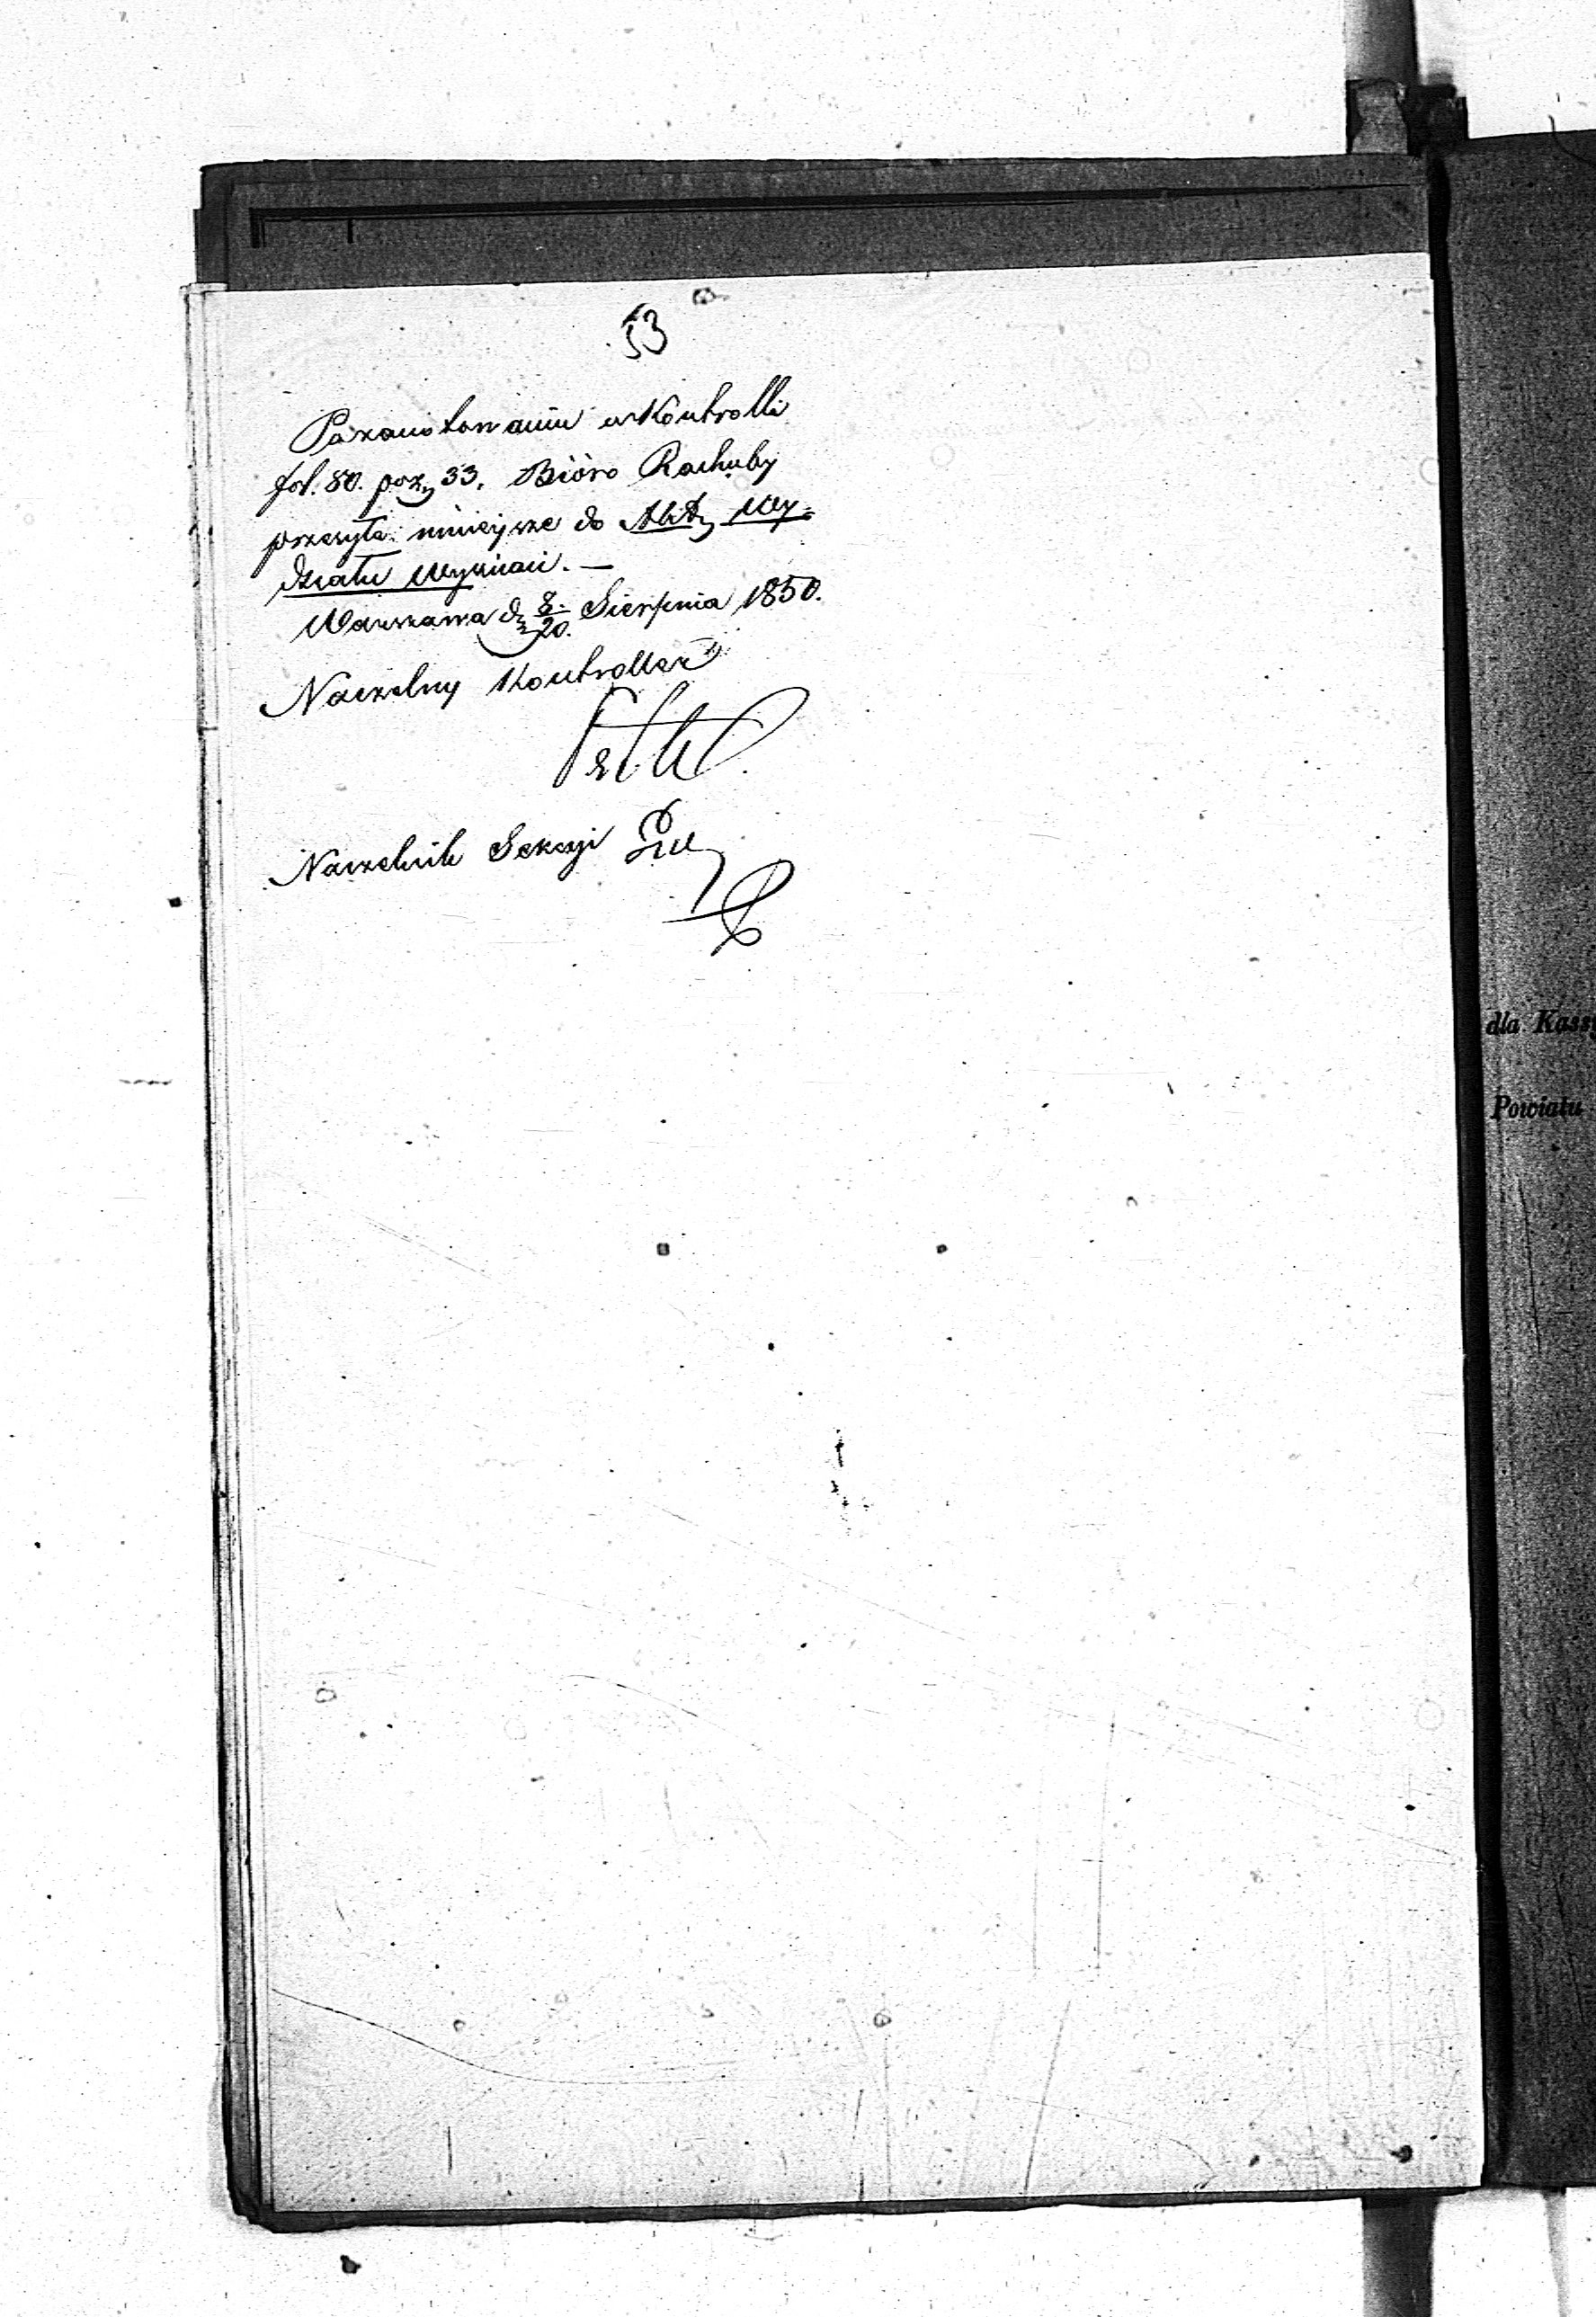 53
Po zanotowaniu w Kontrolli
fol. 80. poz. 33. Bióro Rachuby
przesyła niniejsze do Akt Wy=
działu Wyznań. —
Warszawa d. 8/20. Sierpnia 1850.
Naczelny Kontroller
Naczelnik Sekcyi
dla Kassy
Powiatu